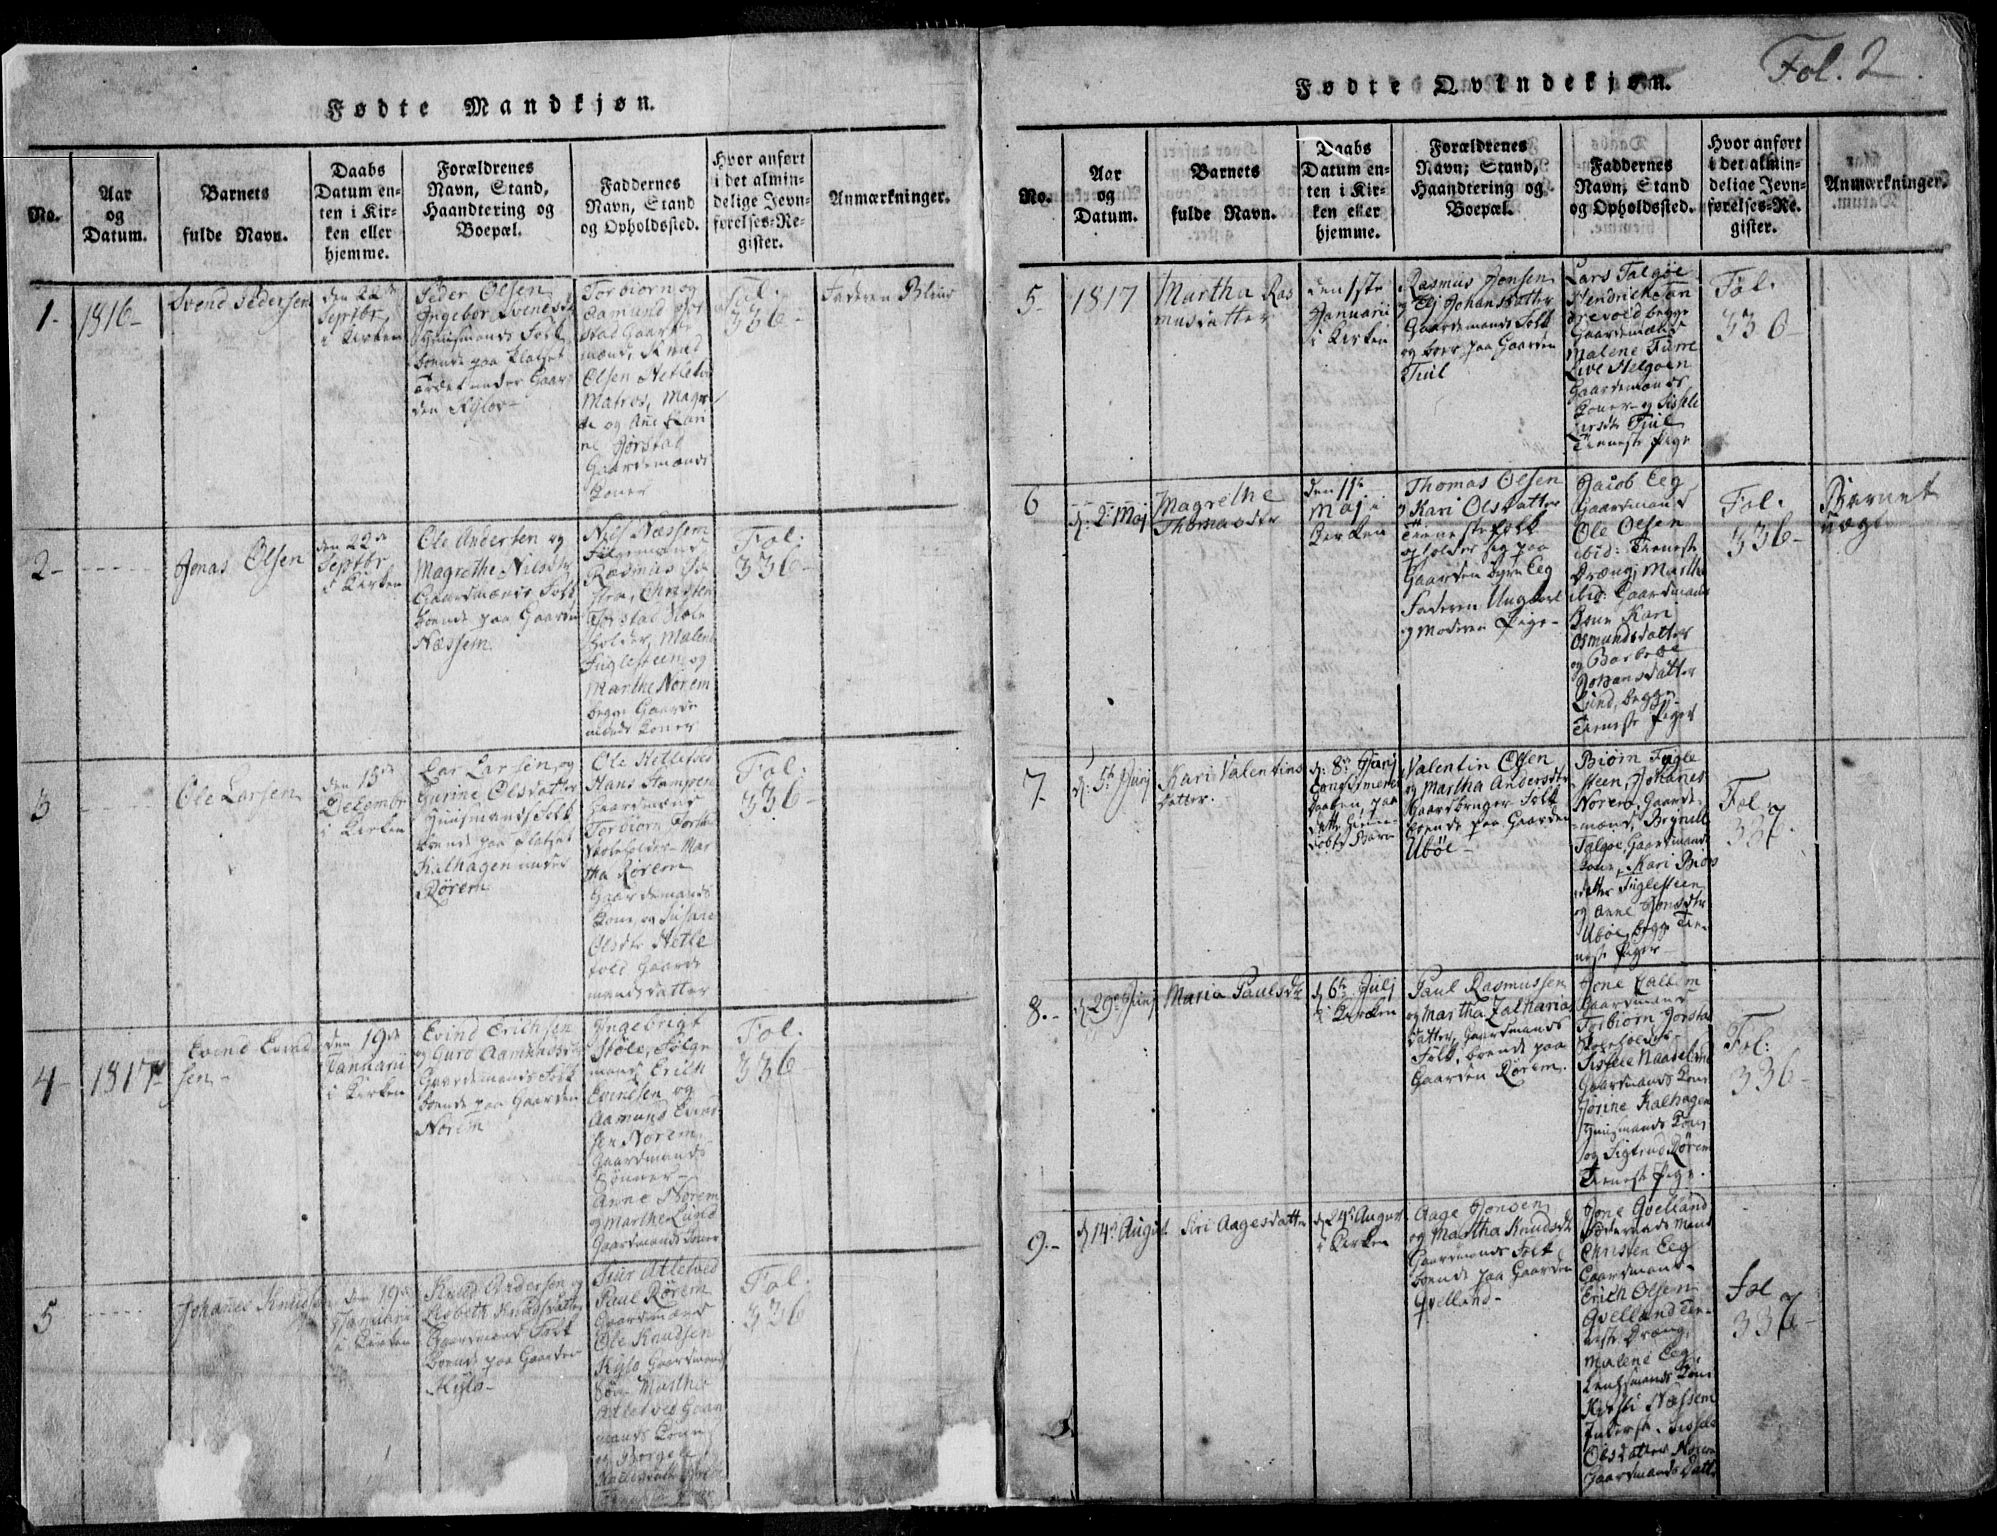 Fødte Mandkjøn.
No.
Aar
og
Datum.
Barnets
fulde Navn.
Daabs
Datum en-
ten i Kir-
ken eller
hjemme.
Forældrenes
Navn, Stand,
Haandtering og
Boepæl.
Faddernes
Navn, Stand
og Opholdssted.
Hvor anført
i det almin-
delige Jevn-
førelses-Re-
gister.
Anmærkninger.
1-
1816-
Svend Pedersen
den 22de
Septbr
i Kirken
Peder Olsen
Ingebor Svendsdtr
Huusmands Folk
boende paa Pladset
under Gaar
den Kylos-
Torbiorn og
Aamund
Gaard
mænd, Knud
Olsen
Matros, Magre
te og Ane Kari
ne Jørstad
Gaardemænds
Koner
Fol.
336-
Faderen
2-
Jonas Olsen
den 22de
Septbr
i Kirken
Ole Andersen og
Magrethe Nilsdtr
Gaardmænds Folk
boende paa Gaarden
Næssem
Nils Næssem
Rasmus
Christen
Jørstad Skole
holder, Malene
Fuglesteen og
Marthe Norem
begge Gaarde
mænds Koner
Fol.
336-
3
Ole Larsen
den 15de
Decembr
i Kirken
Lar Larsen og
Gurine Olsdatter
Huusmands Folk
boende paa Pladset
Kalhagen under
Rørem
Ole Hetletved
Hans
Gaardmænd
Torbiorn Jørsta
Skoleholder- Mar
tha Rørem
Gaardemands
Kone, og Susane
Olsdtr Hetle
tved Gaarde
mandsdatter
Fol.
336-
4-
1817
Evind Evind
sen-
den 19de
Januarii
i Kirken
Evind Erichsen
og Guro Aamundsdtr
Gaardemands Folk
boende paa Gaarden
Norem
Ingebrigt
Støle,
mand, Erich
Evindsen og
Aamund Evind
sen Norem,
Gaardmands
Sønner-
Anne Norem
og Marthe Lund
Gaardmands Koner
Fol.
336-
5
Johanes Knudsen
den 19de
Januarii
i Kirken
Knud Andersen og
Lisbeth Knudsdatter
Gaardmands Folk
boende paa Gaarden
Kylo-
Siur Atletved
Paul Rørem
Gaardmænd
Ole Knudsen
Kylo Gaardmand
Søn- Marthe
Atletved Gaar
mands Kone
og Borgele
Fol.
336
Fødte Qvindekjøn.
Fol. 2.
No.
Aar
og
Datum.
Barnets
fulde Navn.
Daabs
Datum en-
ten i Kir-
ken eller
hjemme.
Forældrenes
Navn; Stand,
Haandtering og
Boepæl.
Faddernes
Navn, Stand
og Opholdssted.
Hvor anført
i det almin-
delige Jevn-
førelses-Re-
gister.
Anmærkninger.
5-
1817
Martha Ras
musdatter
den 1ste
Januarii
i Kirken
Rasmus Jonsen
og Eli Johansdatter
Gaardemands Folk
og boer paa Gaarden
Tiul
Lars Talgøe
Hendrich Tan
drevold begge
Gaardemænd
Malene Furre
Live Helgøen
Gaardemænds
Koner- og Sissele
Larsdtr Tiul
Tieneste Pige
Fol.
336-
6
d: 2d Maj
Magrethe
Thomasdtr
den 11te
Maj i
Kirken
Thomas Olsen
og Kari Olsdatter
Tieneste Folk
opholder sig paa
Gaarden Eeg
Faderen Ungkarl
og Moderen Pige-
Jacob Eeg
Gaardmand
Ole Olsen
ibid: Tieneste
Dræng, Martha
ibid: Gaardmands
Kone Kari
Osmundsdatter
og Barbroe
Johansdatter
Lund, begge
Tieneste Piger
Fol.
336-
Barnet
7-
d: 5te Junj
Kari Valentins
datter.
d: 8de Junj
paa
dette Hjemme
døbte Barn
Valentin Olsen
og Martha Andersdtr
Gaardbruger Folk
boende paa Gaarden
Ubøe-
Biørn Fugle
steen, Johanes
Norem, Gaarde-
mænd, Brynild
Talgøe, Gaardmands
Kone, Kari Biørs
datter Fuglesteen
og Anne Jonsdtr
Ubøe, begge Tie-
neste Piger-
Fol
337.
8.-
d 29de Junj
Maria Paulsdtr
d 6te Julj
i Kirken
Paul Rasmussen
og Martha Zacharias
datter, Gaardmands
Folk, boende paa
Gaarden Rørem.
Jone
Gaardmand
Torbiorn Jørsta
Skoleholder-
Sissele
Gaardmands Kone
Jorine Kalhagen
Huusmands Kone
og Sigtrud Rørem
Tieneste Pige.
Fol:
336-
9.-
d 14de August
Siri Aagesdatter
d 24de August
i Kirken
Aage Jonsen
og Martha Knudsdtr
Gaardmands Folk
boende paa Gaarden
Qvelland-
Jone Qvelland
Christen Eeg
Gaardmand-
Erich Olsen
Qvelland Tie-
neste Dræng,
Malene Eeg
Lensmands Kone
Kirsti Næssem
Sissele
Olsdatter Norem
Gaardmands Datt.
Fol
337-